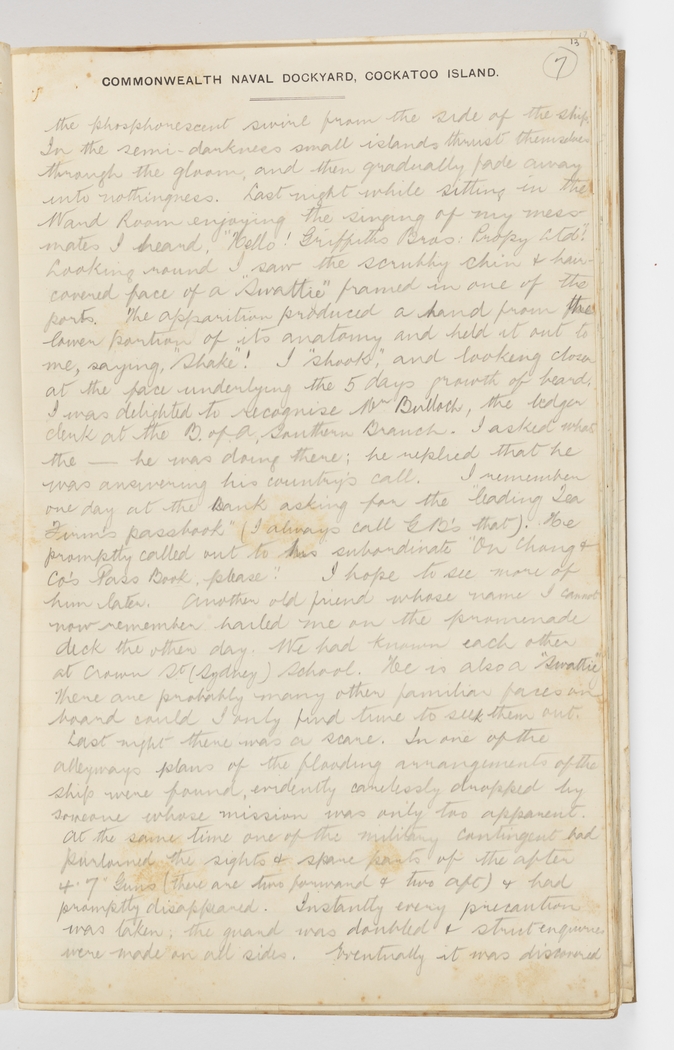 13
7
COMMONWEALTH NAVAL DOCKYARD, COCKATOO ISLAND.
the phosphorescent swirl from the side of the ship.
In the semi-darkness small islands thrust themselves
through the gloom, and then gradually fade away
into nothingness. Last night while sitting in the
Ward Room enjoying the singing of my mess
mates I heard, "Hello! Griffiths Bros: Propy Ltd"!
Looking round I saw the scrubby chin & hair-
covered face of a "Swattie" framed in one of the
ports. The apparition produced a hand from the
lower portion of its anatomy and held it out to
me, saying, "Shake"! I "shook," and looking closer
at the face underlying the 5 days growth of beard,
I was delighted to recognise Mr Bulloch, the ledger
clerk at the B. of A, Southern Branch. I asked what
the — he was doing there; he replied that he
was answering his country's call. I remember
one day at the Bank asking for the "leading Tea
Firm's passbook" (I always call G B's that). He
promptly called out to his subordinate "On Chong &
Co's Pass Book, please". I hope to see more of
him later. Another old friend whose name I cannot
now remember hailed me on the promenade
deck the other day. We had known each other
at Crown St (Sydney) School. He is also a "Swattie"
There are probably many other familiar faces on
board could I only find time to seek them out.
Last night there was a scare. In one of the
alleyways plans of the flooding arrangements of the
ship were found, evidently carelessly dropped by
someone whose mission was only too apparent.
At the same time one of the military contingent had
purloined the sights & spare parts of the after
4.7" Guns (there are two forward & two aft) & had
promptly disappeared. Instantly every precaution
was taken; the guard was doubled & strict enquiries
were made on all sides. Eventually it was discovered